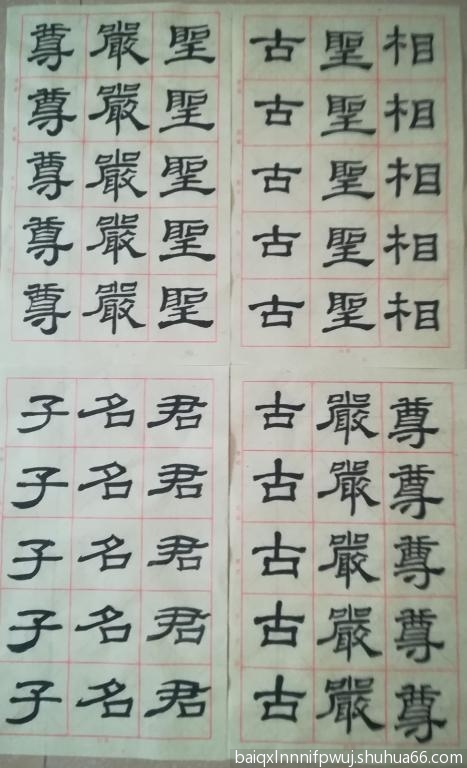 聖聖聖聖聖
嚴嚴嚴嚴嚴
尊尊尊尊尊
相相相相相
聖聖聖聖聖
古古古古古
君君君君君
名名名名名
子子子子子
尊尊尊尊尊
嚴嚴嚴嚴嚴
古古古古古
baiqxlnnnifpwuj.shuhua66.com